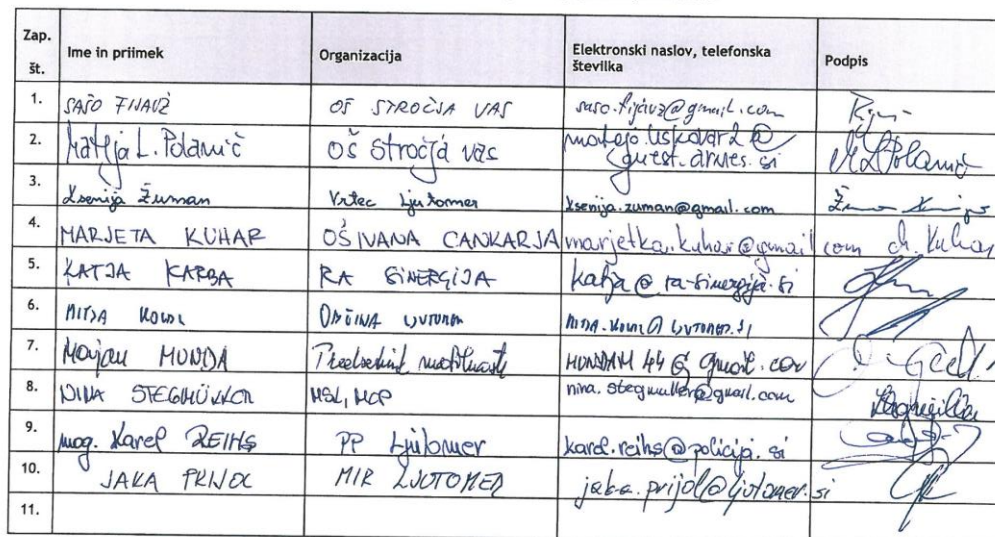 Zap. št. Ime in priimek Organizacija Elektronski naslov, telefonska številka Podpis
1. SAŠO FIJAVŽ OŠ STROČJA VAS saso.fijavz@gmail.com
2. Mateja L. Polanič OŠ Stročja vas guest.arnes.si
3. Ksenija Žuman Vrtec Ljutomer ksenija.zuman@gmail.com
4. MARJETA KUHAR OŠ IVANA CANKARJA marjetka.kuhar@gmail.com M. Kuhar
5. KATJA KARBA RA SINERGIJA katja@ra-sinergija.si
6. MITJA OBČINA LJUTOMER
7. Marjan MUNDA MUNDAM44@gmail.com
8. NINA nina.stegmuller@gmail.com
9. mag. Karel REIHS PP Ljutomer karel.reihs@policija.si
10. JAKA PRIJOL MIR LJUTOMER jaka.prijol@ljutomer.si
11.